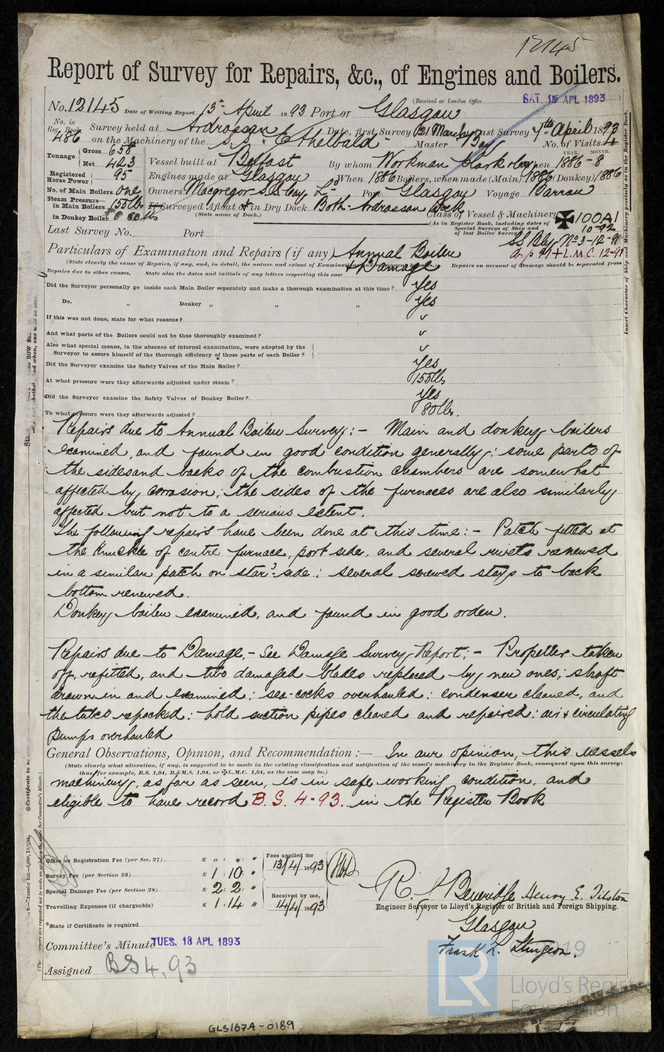 12145
Report of Survey for Repairs, &c., of Engines and Boilers.
(Received at London Office SAT. 15 APL 1893
No. 12145 Date of Writing Report 13th April 1893 Port of Glasgow
No. in Reg. Book 486 Survey held at Ardrossan Date, first Survey 1st March Last Survey 7th April 1893
on the Machinery of the S.S. "Ethelbald" Master Day No. of Visits 4
Tonnage Gross 658 Net 423 Vessel built at Belfast By whom Workman Clark & Co When 1886-8
YEAR. MONTH.
Registered Horse Power 95 Engines made at Glasgow When 1886 Boilers, when made (Main) 1886 (Donkey) 1886
No. of Main Boilers one Owners Macgregor Port Glasgow Voyage Barrow
Steam Pressure in Main Boilers 150lb If Surveyed Afloat or in Dry Dock Both Ardrossan Dock
in Donkey Boiler 80lbs (State name of Dock.)
Class of Vessel & Machinery 100A1
(As in Register Book, including dates of Special Surveys of Ship and of last Boiler Survey) 10-92
Last Survey No. Port
+L.M.C. 12-91
Particulars of Examination and Repairs (if any) Annual Boiler
& Damage
Did the Surveyor personally go inside each Main Boiler separately and make a thorough examination at this time? Yes
Do. " Donkey " " " Yes
If this was not done, state for what reasons? "
And what parts of the Boilers could not be thus thoroughly examined? "
Also what special means, in the absence of internal examination, were adopted by the
Surveyor to assure himself of the thorough efficiency of those parts of each Boiler? "
Did the Surveyor examine the Safety Valves of the Main Boiler? Yes
At what pressure were they afterwards adjusted under steam? 150lbs
Did the Surveyor examine the Safety Valves of Donkey Boiler? Yes
To what pressure were they afterwards adjusted? 80lbs.
Repairs due to Annual Boiler Survey:- Main and donkey boilers
examined, and found in good condition generally; some parts of
the sides and backs of the combustion chambers are somewhat
affected by corrosion; the sides of the furnaces are also similarly
affected but not to a serious extent.
The following repairs have been done at this time:- Patch fitted at
the knuckle of centre furnace, port side, and several rivets renewed
in a similar patch on star'd side; several screwed stays to back
bottom renewed.
Donkey boiler examined, and found in good order.
Repairs due to Damage.- See Damage Survey Report:- Propeller taken
off, refitted, and two damaged blades replaced by new ones; shaft
drawn in and examined; sea-cocks overhauled; condenser cleaned, and
the tubes repacked; hold suction pipes cleared and repaired; air & circulating
pumps overhauled
General Observations, Opinion, and Recommendation:— In our opinion, this vessels
(State clearly what alteration, if any, is suggested to be made in the existing classification and notification of the vessel's machinery in the Register Book, consequent upon this survey:
thus, for example, B.S. 1.94, B.&M.S. 1.94, or +L.M.C. 1.94, as the case may be.)
machinery, as far as seen, is in safe working condition, and
eligible to have record B.S. 4-93. in the Register Book
Office or Registration Fee (per Sec. 27)... £ " : " : "
Fees applied for
13/4/1893
Survey Fee (per Section 28)... £ 1 : 10 : "
Special Damage Fee (per Section 28)... £ 2 : 2 : "
Received by me,
14/4/1893
Travelling Expenses (if chargeable) £ 1 : 14 : "
*State if Certificate is required
R. Beveridge Henry E. Tilston
Engineer Surveyor to Lloyd's Register of British and Foreign Shipping.
Glasgow
Frank L. Sturgeon.
Committee's Minute TUES. 18 APL 1893
Assigned BS 4,93
© 2019
LR
Lloyd's Register
Foundation
GLS167A-0189